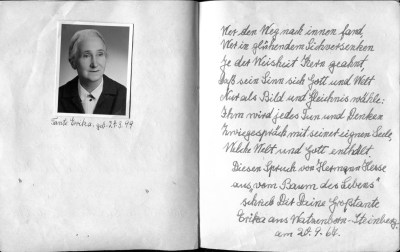 Tante Erika, geb. 27.9.99
Wer den Weg nach innen fand,
Wer in glühendem Sichversenken
Je der Weisheit Kern geahnt,
Daß sein Sinn sich Gott und Welt
Nur als Bild und Gleichnis wähle:
Ihm wird jedes Tun und Denken
Zwiegespräch mit seiner eignen Seele,
Welche Welt und Gott enthält.
Diesen Spruch von Hermann Hesse
aus "vom Baum des Lebens"
schrieb Dir Deine Großtante
Erika aus Watzenborn-Steinberg
am 20.9.64.